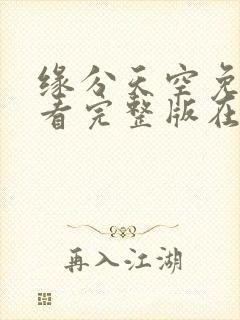 缘分天空免
看完整版在
再入江湖